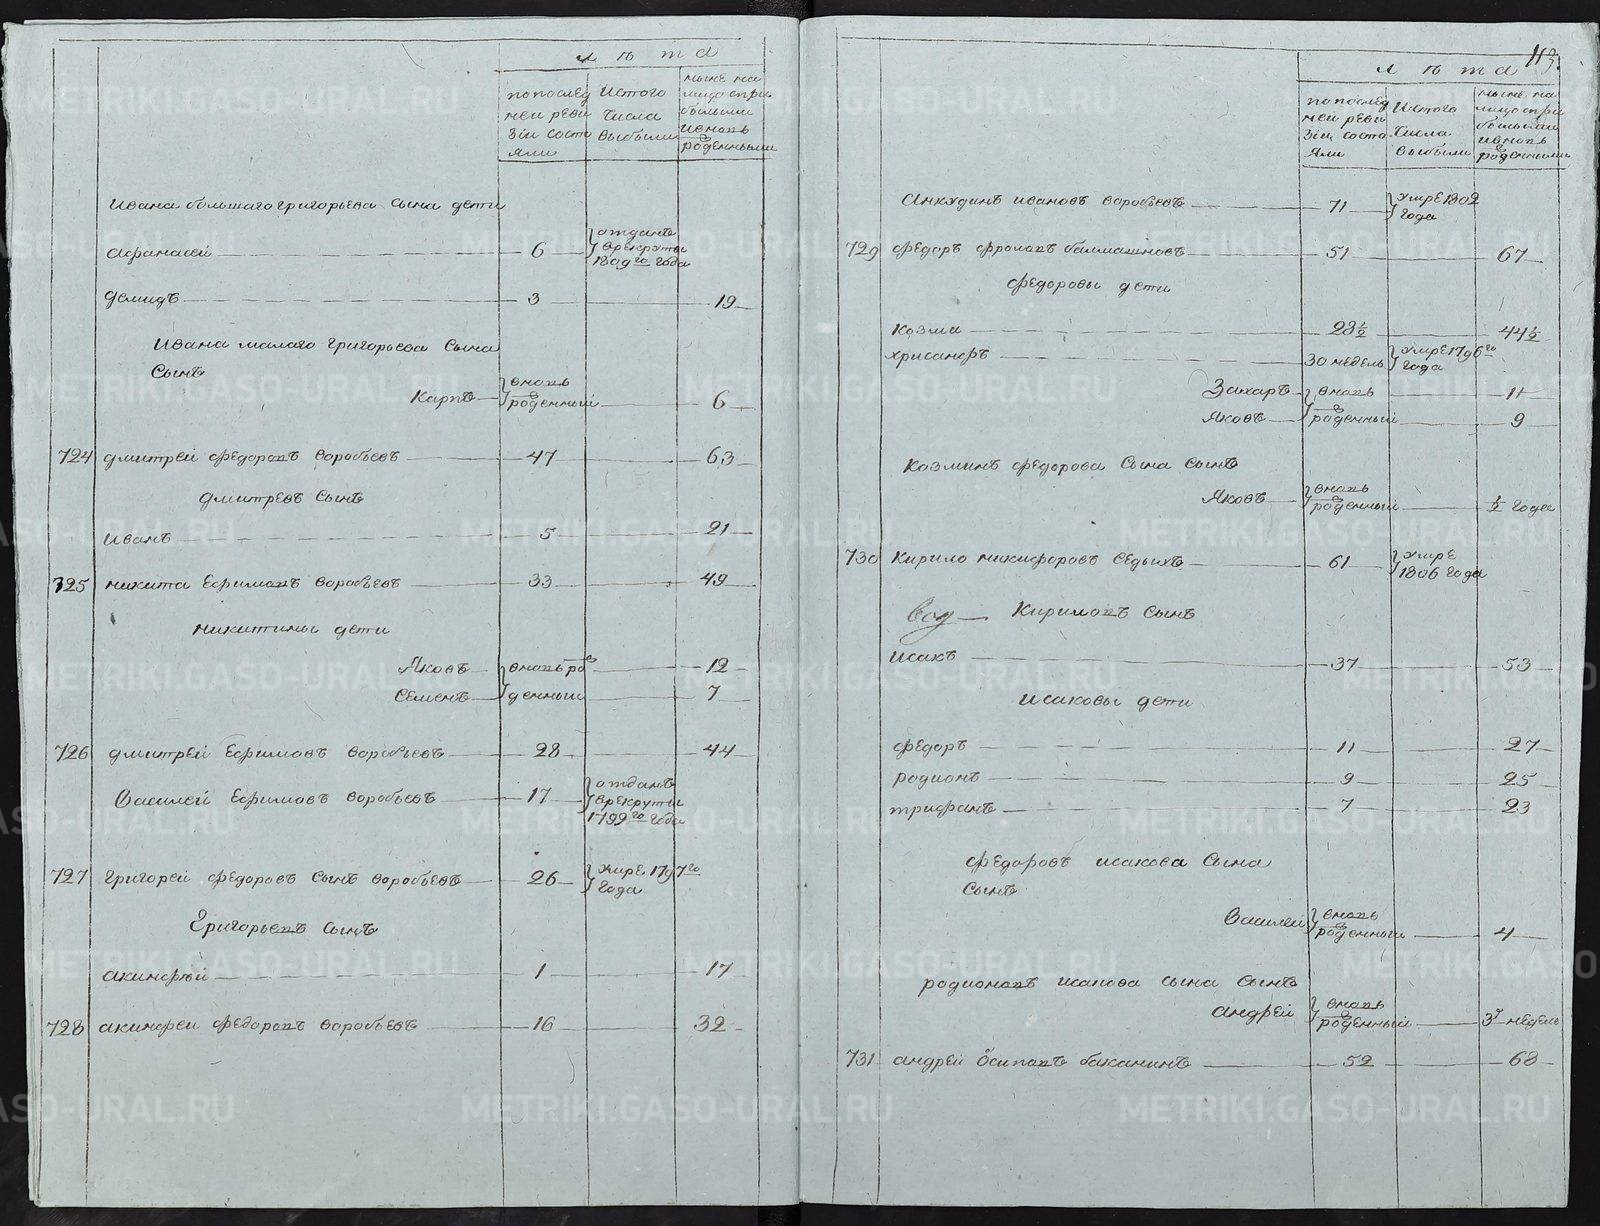 лѣта
по послед
ней реви
зіи состо
яли
Истого
Числа
выбыли
ныне на
лицо спри
былыми
ивновь
рожденными
Ивана большаго григорьева сына дети
афанасей 6 отданъ
врекруты
1809го года
демидъ 3 19
Ивана малаго григорьева сына
Сынъ
Карпъ вновь
рожденный 6
724 дмитрей федоровъ воробьевъ 47 63
дмитревъ сынъ
Иванъ 5 21
725 никита Ефимовъ воробьевъ 33 49
никитины дети
Яковъ вновь ро 12
Семенъ жденныи 7
726 дмитрей Ефимовъ воробьевъ 28 44
Василей Ефимовъ воробьевъ 17 отданъ
врекруты
1799го года
727 григорей федоровъ сынъ воробьевъ 26 умре 1797го
года
Григорьевъ сынъ
акинфей 1 17
728 акинфеи федоровъ воробьевъ 16 32
113.
лѣта
по послед
ней реви
зіи состо
яли
Истого
Числа
выбыли
ныне на
лицо спри
былыми
ивновь
рожденными
Анкудинъ ивановъ воробьевъ 71 умре 1802
года
729 федоръ фроловъ балмашновъ 51 67
федоровы дети
козма 28½ 44½
хрисанфъ 30 недель умре 1796го
года
Захаръ вновь 11
Яковъ рожденный 9
козминъ федорова сына сынъ
Яковъ вновь
рожденный ½ года
730 Кирило никифоровъ Седыхъ 61 умре
1806 года
Кириловъ сынъ
Исакъ 37 53
Исаковы дети
федоръ 11 27
родионъ 9 25
трифанъ 7 23
федоровъ исакова сына
сынъ
Василей вновь
рожденный 4
родионовъ исакова сына сынъ
андрей вновь
рожденный 3 недель
731 андрей Осиповъ баканинъ 52 68
METRIKI.GASO-URAL.RU